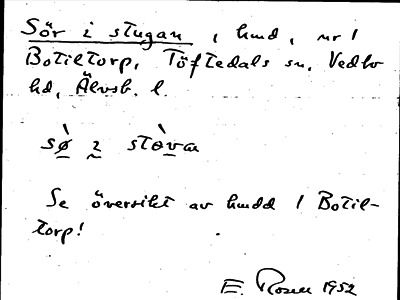 Sör i stugan, hmd, nr 1
Botiltorp, Töftedals sn. Vedbo
hd, Älvsb. l.
sø̀ ı støva
Se översikt av hmdd / Botil-
torp!
E. Rosen 1952